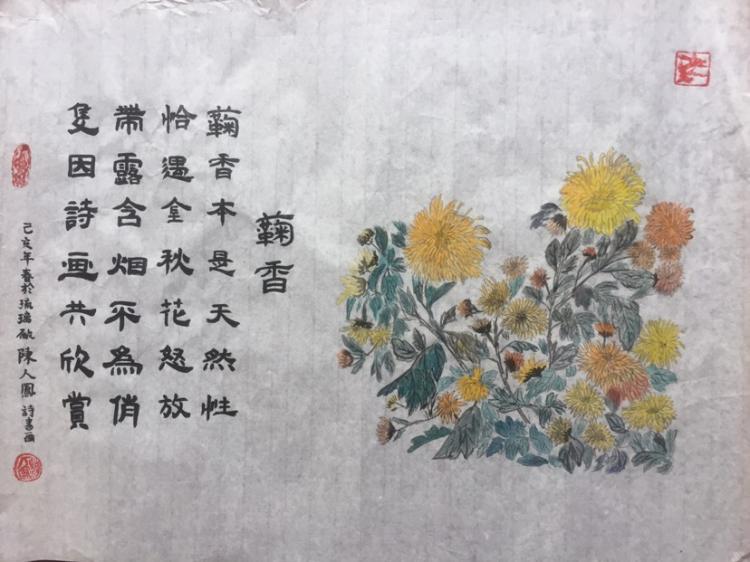 蘜香
蘜香本是天然性
恰遇金秋花怒放
帶露含烟不為俏
隻因詩畫共欣賞
己亥年春於琉璃廠陳人鳳詩書畫